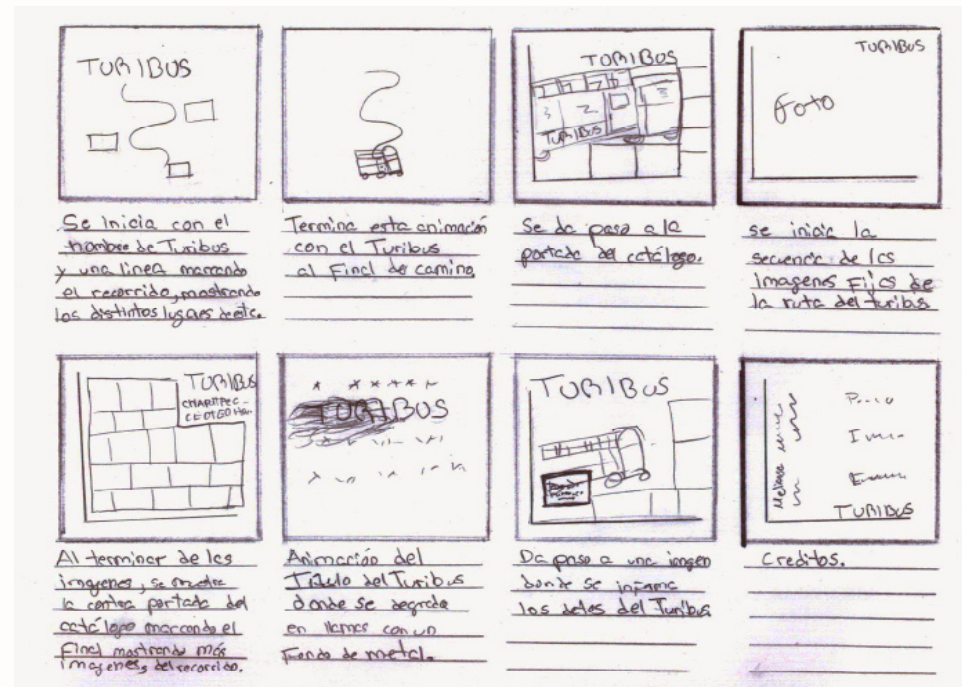 TURIBUS
Se Inicia con el
nombre de Turibus
y una linea marcando
el recorrido, mostrando
los distintos lugares
Termina esta animación
con el Turibus
al Final de camino.
TURIBUS
3 2 3
TURIBUS
Se da paso a la
portada del catálogo.
TURIBUS
Foto
se inicia la
secuencia de las
Imagenes Fijas de
la ruta del turibus
TURIBUS
Al terminar de las
imagenes, se muestra
la contra portada del
catálogo marcando el
Final mostrando más
imagenes del recorrido.
TURIBUS
Animación del
Titulo del Turibus
donde se degrada
en llamas con un
Fondo de metal.
TURIBUS
Da paso a una imagen
donde se informa
los datos del Turibus
TURIBUS
Creditos.